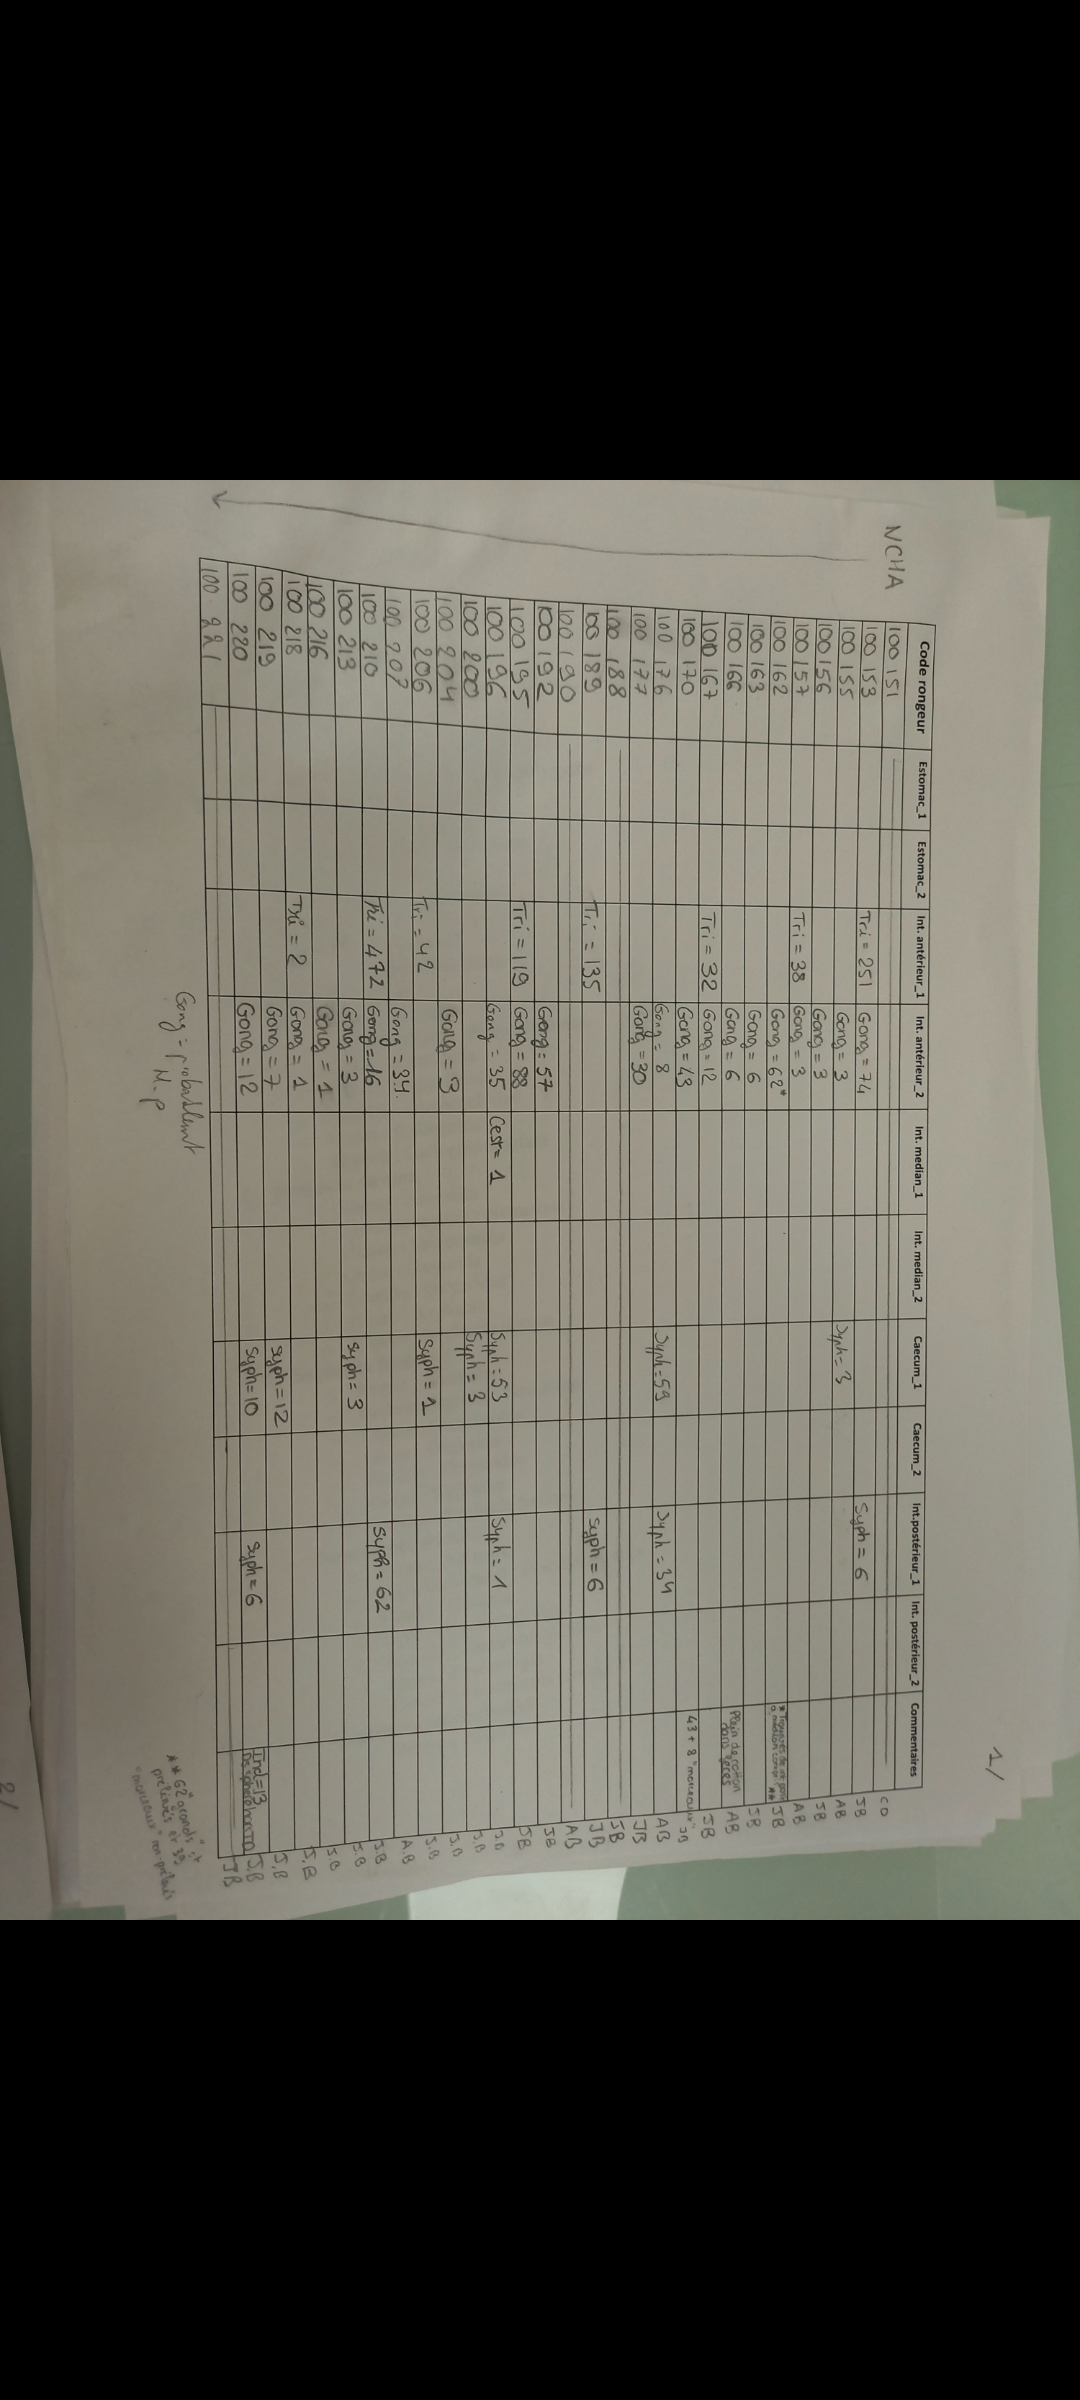 1/
Code rongeur Estomac_1 Estomac_2 Int. antérieur_1 Int. antérieur_2 Int. median_1 Int. median_2 Caecum_1 Caecum_2 Int.postérieur_1 Int. postérieur_2 Commentaires
NCHA
100 151 CD
100 153 Tri = 251 Gong = 74 Syph = 6 JB
100 155 Gong = 3 Syph = 3 AB
100 156 Gong = 3 JB
100 157 Tri = 38 Gong = 3 AB
100 162 Gong = 62* * Trouvés de int post a median compris ** JB
100 163 Gong = 6 JB
100 166 Gong = 6 Plein de coton dans feces AB
100 167 Tri = 32 Gong = 12 JB
100 170 Gong = 43 43 + 8 "morceaux" JB
100 176 Gong = 8 Syph = 59 Syph = 34 AB
100 177 Gong = 30 JB
100 188 JB
100 189 Tri = 135 Syph = 6 JB
100 190 AB
100 192 Gong = 57 JB
100 195 Tri = 119 Gong = 88 JB
100 196 Gong = 35 Cest = 1 Syph = 53 Syph = 1 J.B
100 200 Syph = 3 J.B
100 204 Gong = 3 J.B
100 206 Tri = 42 Syph = 1 J.B
100 207 Gong = 34. A.B
100 210 Tri = 472 Gong = 16 Syph = 62 J.B
100 213 Gong = 3 Syph = 3 J.B
100 216 Gong = 1 J.B
100 218 Tri = 2 Gong = 1 J.B
100 219 Gong = 7 Syph = 12 J.B
100 220 Gong = 12 Syph = 10 Syph = 6 Ind = 13 J.B
100 221 JB
Gong = probablemt
M.p
** 62 "grands"
prélevés et 39
"morceaux" non-prélevés
2/